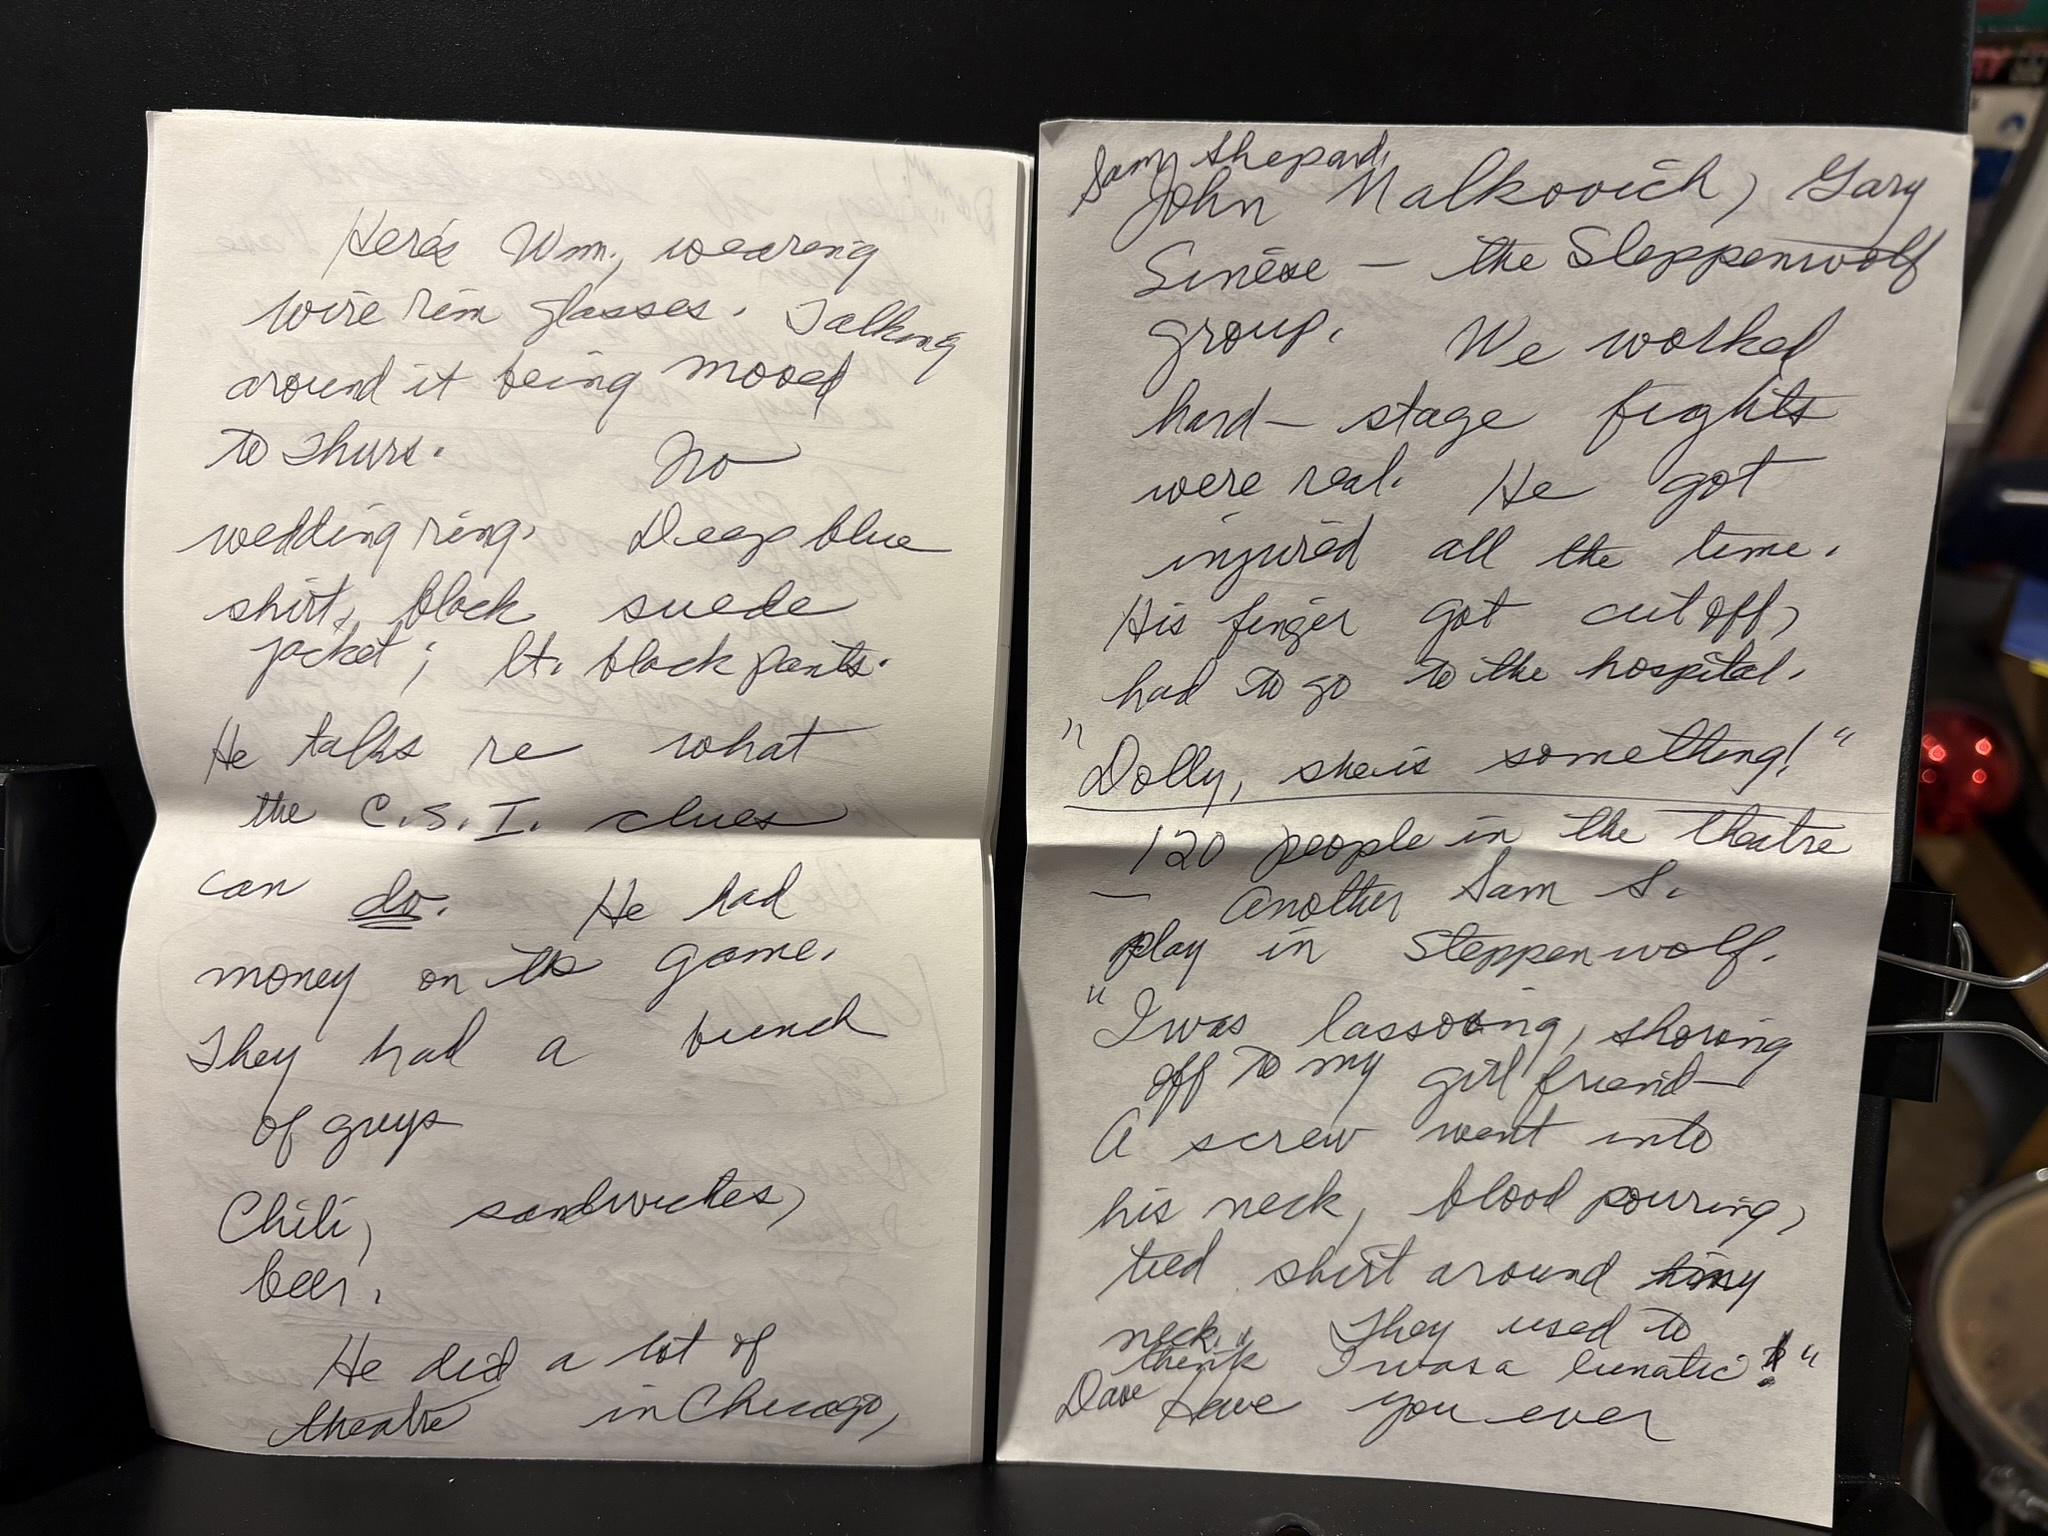 Here's Wm., wearing
wire rim glasses. Talking
around it being moved
to Thurs. No
wedding ring. Deep blue
shirt, black suede
jacket; lt. black pants.
He talks re what
the C.S.I. clues
can do. He had
money on the game.
They had a bunch
of guys
Chili, sandwiches,
beer.
He did a lot of
theatre in Chicago,
Sam Shepard,
John Malkovich, Gary
Sinese — the Steppenwolf
group. We worked
hard — stage fights
were real. He got
injured all the time.
His finger got cut off,
had to go to the hospital.
"Dolly, she is something!"
120 people in the theatre
— Another Sam S.
play in Steppenwolf.
"I was lassoing, showing
off to my girl friend —
A screw went into
his neck, blood pouring,
tied shirt around my
neck. They used to
think I was a lunatic!"
Dave Have you ever